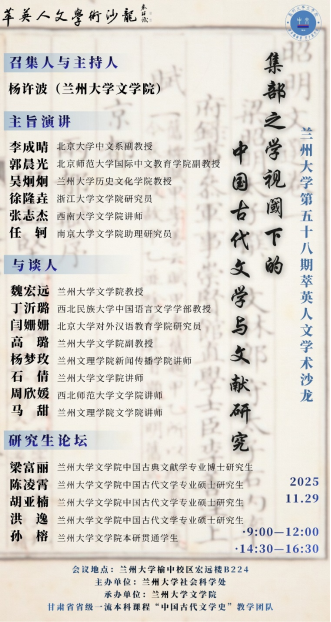 萃英人文學術沙龍
召集人与主持人
杨许波（兰州大学文学院）
主旨演讲
李成晴 北京大学中文系副教授
郭晨光 北京师范大学国际中文教育学院副教授
吴炯炯 兰州大学历史文化学院教授
徐隆垚 浙江大学文学院研究员
张志杰 西南大学文学院讲师
任轲 南京大学文学院助理研究员
与谈人
魏宏远 兰州大学文学院教授
丁沂璐 西北民族大学中国语言文学学部教授
闫姗姗 北京大学对外汉语教育学院研究员
高璐 兰州大学文学院副教授
杨梦玫 兰州文理学院新闻传播学院讲师
石倩 兰州大学文学院讲师
周欣媛 西北师范大学文学院讲师
马甜 兰州文理学院文学院讲师
研究生论坛
梁富丽 兰州大学文学院中国古典文献学专业博士研究生
陈凌霄 兰州大学文学院中国古代文学专业硕士研究生
胡亚楠 兰州大学文学院中国古代文学专业硕士研究生
洪逸 兰州大学文学院中国古代文学专业硕士研究生
孙榕 兰州大学文学院本研贯通学生
集部之学视阈下的
中国古代文学与文献研究
兰州大学第五十八期萃英人文学术沙龙
2025
11.29
·9:00—12:00
·14:30—16:30
会议地点：兰州大学榆中校区宏远楼B224
主办单位：兰州大学社会科学处
承办单位：兰州大学文学院
甘肃省省级一流本科课程“中国古代文学史”教学团队